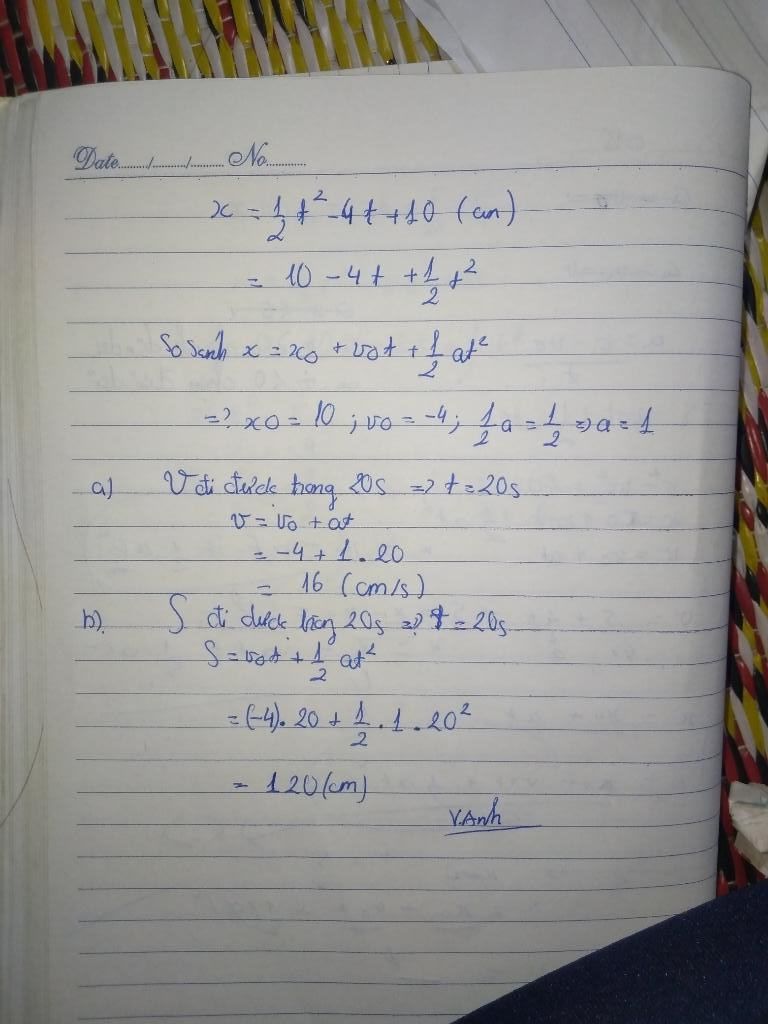 Date......./......../......... No............
x = 1/2 t² - 4t + 10 (cm)
= 10 - 4t + 1/2 t²
So sánh x = x0 + v0t + 1/2 at²
=> x0 = 10 ; v0 = -4 ; 1/2 a = 1/2 => a = 1
a) V đi được trong 20s => t = 20s
v = v0 + at
= -4 + 1 . 20
= 16 (cm/s)
b). S đi được trong 20s => t = 20s
S = v0t + 1/2 at²
= (-4) . 20 + 1/2 . 1 . 20²
= 120 (cm)
V.Anh